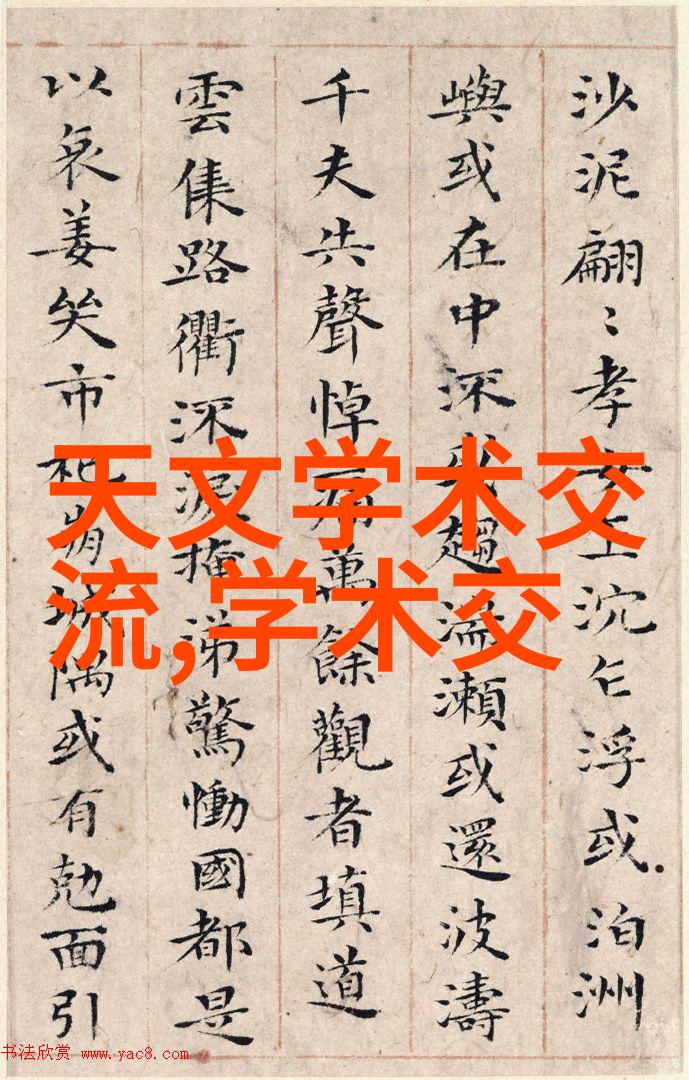 沙泥翩〻孝女乍沉乍浮或泊洲
嶼或在中流或趨湍瀨或還波濤
千夫失聲悼痛萬餘觀者填道
雲集路衢流淚掩涕驚慟國都是
以哀姜哭市杞崩城隅或有剋面引
天文学术交
流,学术交
书法欣赏 www.yac8.com